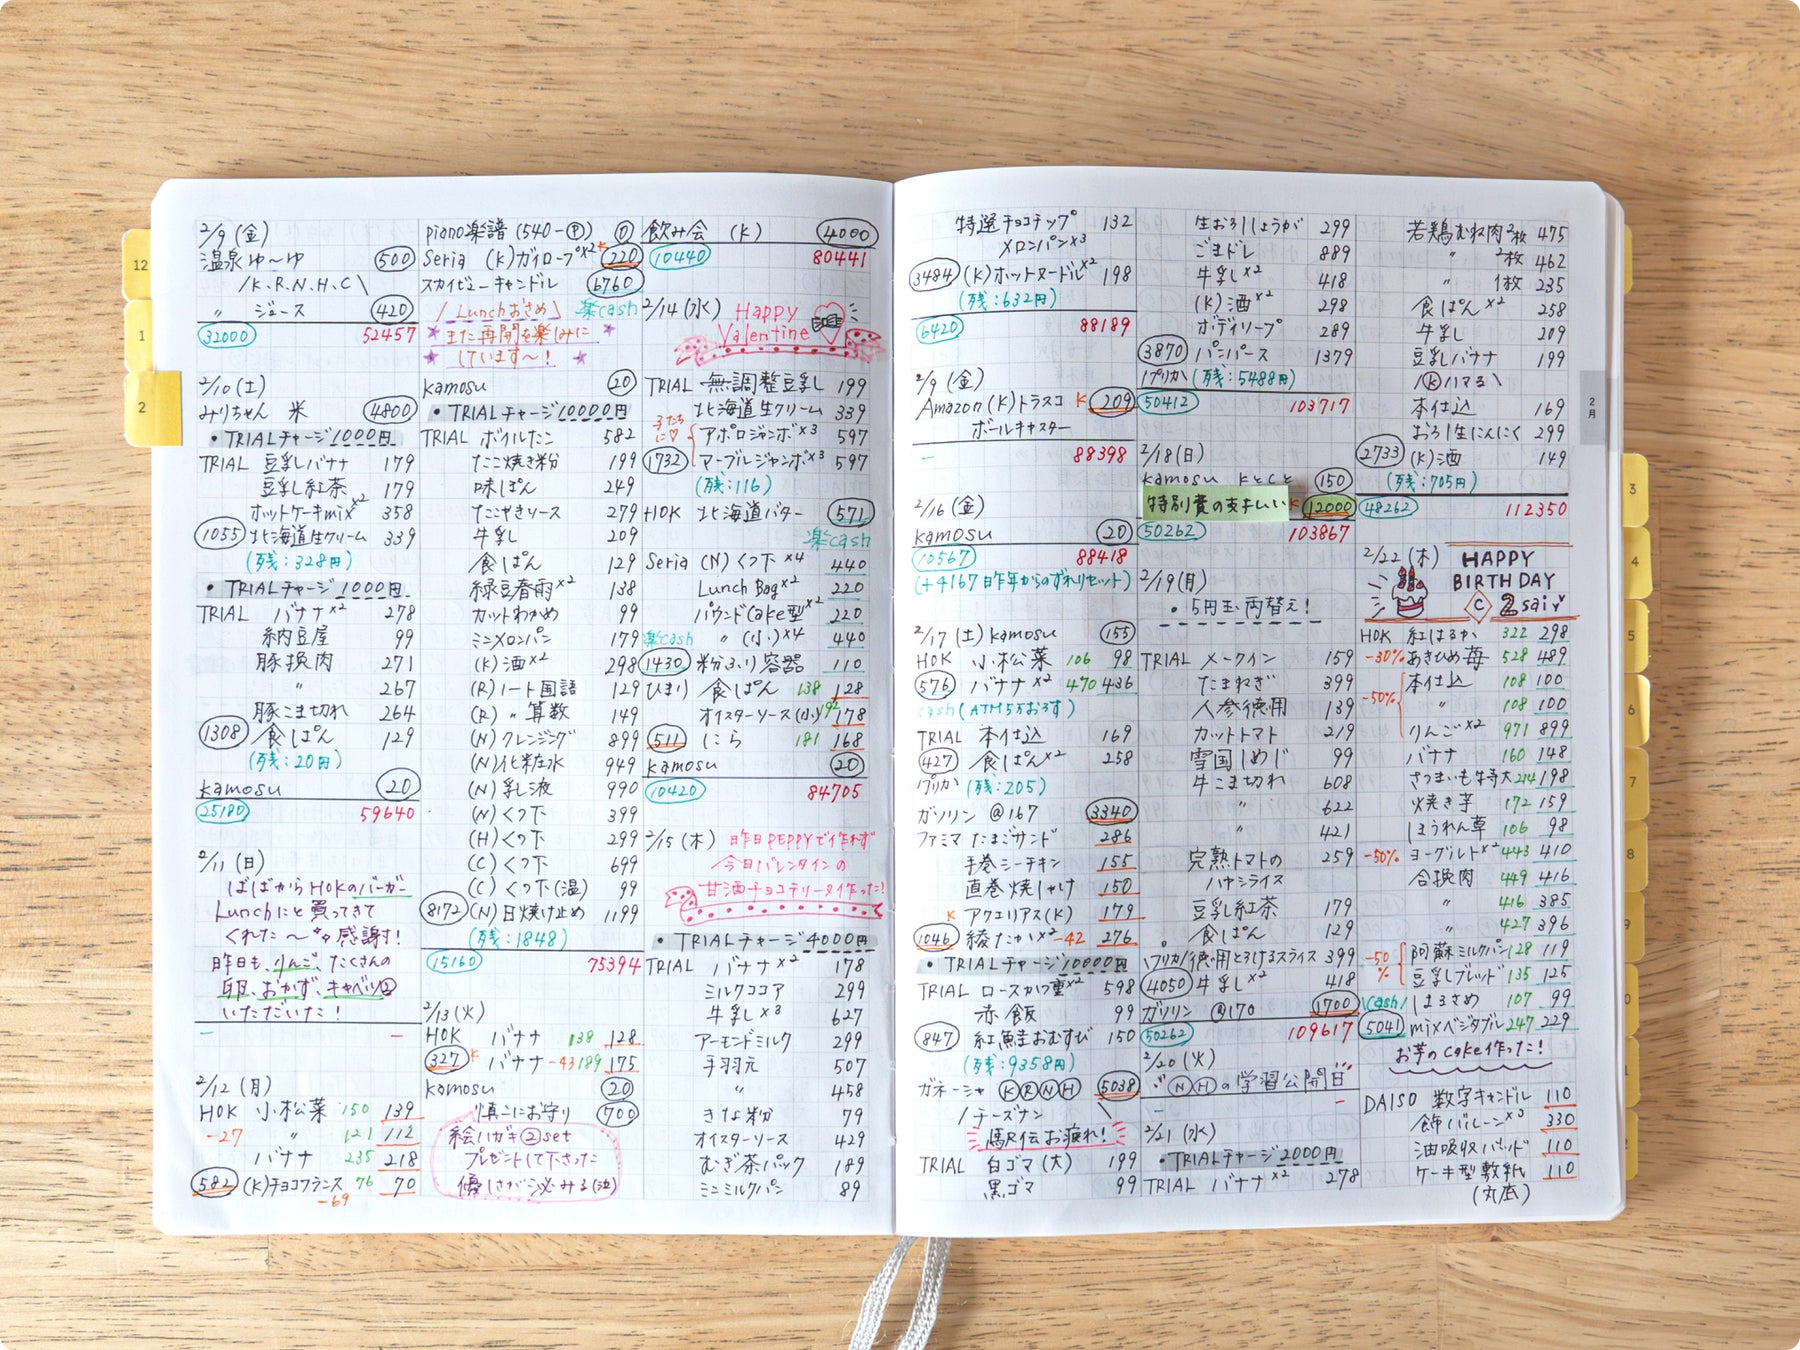 12
1
2
2/9 (金)
温泉ゆ〜ゆ 500
/K.R.N.H.C\
〃 ジュース 420
32000 52457
2/10 (土)
みりちゃん 米 4800
• TRIALチャージ1000円
TRIAL 豆乳バナナ 179
豆乳紅茶 179
ホットケーキmix×2 358
1055 北海道生クリーム 339
(残:328円)
• TRIALチャージ 1000円
TRIAL バナナ×2 278
納豆屋 99
豚挽肉 271
〃 267
豚こま切れ 264
1308 食ぱん 129
(残:20円)
kamosu 20
25180 59640
2/11 (日)
ばぁばからHOKのバーガー
Lunchにと買ってきて
くれた〜 感謝!
昨日も、りんご、たくさんの
卵、おかず、キャベツ②
いただいた!
– –
2/12 (月)
HOK 小松菜 150 139
-27 〃 121 112
バナナ 235 218
582 (K)チョコフランス 76 70
-69
piano楽譜 (540-Ⓟ) 0
Seria (K)ガイロープ×2 K 220
スカイビューキャンドル 6760
/ Lunchおさめ \ 楽cash
★また再開を楽しみに★
★しています〜! ★
kamosu 20
• TRIALチャージ10000円
TRIAL ボイルたこ 582
たこ焼き粉 199
味ぽん 249
たこやきソース 279
牛乳 209
食ぱん 129
緑豆春雨×2 138
カットわかめ 99
ミニメロンパン 179
(K)酒×2 298
(R)ノート国語 129
(R) 〃 算数 149
(N)クレンジング 899
(N)化粧水 949
(N)乳液 990
(N)くつ下 399
(H)くつ下 299
(C)くつ下 699
(C)くつ下(温) 99
8172 (N)日焼け止め 1199
(残:1848)
15160 75394
2/13(火)
HOK バナナ 138 128
327 K バナナ -43 189 175
kamosu 20
慎二にお守り 700
絵ハガキ②set
プレゼントして下さった
優しさが沁みる(泣)
飲み会 (K) 4000
10440 80441
2/14 (水) Happy
Valentine
TRIAL 無調整豆乳 199
北海道生クリーム 339
子たちに♡ アポロジャンボ×3 597
1732 マーブルジャンボ×3 597
(残:116)
HOK 北海道バター 571
楽cash
Seria (N)くつ下×4 440
Lunch Bag×2 220
パウンドCake型×2 220
楽cash 〃 (小)×4 440
1430 粉ふり容器 110
ひまり 食ぱん 138 128
オイスターソース(小) 192 178
511 にら 181 168
kamosu 20
10420 84705
2/15 (木) 昨日PEPPYで作れず
今日バレンタインの
甘酒チョコテリーヌ作った!
• TRIALチャージ4000円
TRIAL バナナ×2 178
ミルクココア 299
牛乳×3 627
アーモンドミルク 299
手羽元 507
〃 458
きな粉 79
オイスターソース 429
むぎ茶パック 189
ミニミルクパン 89
特選チョコチップ 132
メロンパン×3
3484 (K)ホットヌードル×2 198
(残:632円)
6420 88189
2/9 (金)
Amazon(K)トラスコ K 209
ボールキャスター
– 88398
2/16 (金)
kamosu 20
10567 88418
(+4167 昨年からのずれリセット)
2/17 (土) kamosu 155
HOK 小松菜 106 98
576 バナナ×2 470 436
cash (ATM5万おろす)
TRIAL 本仕込 169
427 食ぱん×2 258
プリカ (残:205)
ガソリン @167 3340
ファミマ たまごサンド 286
手巻シーチキン 155
直巻焼しゃけ 150
K アクエリアス(K) 179
1046 綾たか×2 -42 276
• TRIALチャージ10000円
TRIAL ロースかつ重×2 598
赤飯 99
847 紅鮭おむすび 150
(残:9358円)
ガネーシャ ⓀⓇⓃⒽ 5038
/チーズナン
駅伝お疲れ!
TRIAL 白ゴマ(大) 199
黒ゴマ 99
生おろししょうが 299
ごまドレ 889
牛乳×2 418
(K)酒×2 298
ボディソープ 289
3870 パンパース 1379
/プリカ (残:5488円)
50412 103717
2/18(日)
kamosu KとCと 150
特別費の支払い K 12000
50262 103867
2/19(月)
• 5円玉両替え!
TRIAL メークイン 159
たまねぎ 399
人参徳用 139
カットトマト 219
雪国しめじ 99
牛こま切れ 608
〃 622
〃 421
完熟トマトの 259
ハヤシライス
豆乳紅茶 179
食ぱん 129
\プリカ/ 徳用とろけるスライス 399
4050 牛乳×2 418
ガソリン @170 1700
50262 109617
2/20 (火)
ⓃⒽの学習公開日
– –
2/21 (水)
• TRIALチャージ2000円
TRIAL バナナ×2 278
若鶏むね肉2枚 475
〃 2枚 462
〃 1枚 235
食ぱん×2 258
牛乳 209
豆乳バナナ 199
/Ⓚハマる\
本仕込 169
おろし生にんにく 299
2733 (K)酒 149
(残:705円)
48262 112350
2/22 (木) HAPPY
BIRTHDAY
C 2sai
HOK 紅はるか 322 298
-30% あきひめ苺 528 489
本仕込 108 100
-50% 〃 108 100
りんご×2 971 899
バナナ 160 148
さつまいも特大 214 198
焼き芋 172 159
ほうれん草 106 98
-50% ヨーグルト×2 443 410
合挽肉 449 416
〃 416 385
〃 427 396
-50% 阿蘇ミルクパン 128 119
豆乳ブレッド 135 125
\Cash/ はるさめ 107 99
5041 mixベジタブル 247 229
お芋のcake作った!
DAISO 数字キャンドル 110
飾バルーン×3 330
油吸収パッド 110
ケーキ型敷紙 110
(丸底)
2
月
3
4
5
6
7
8
9